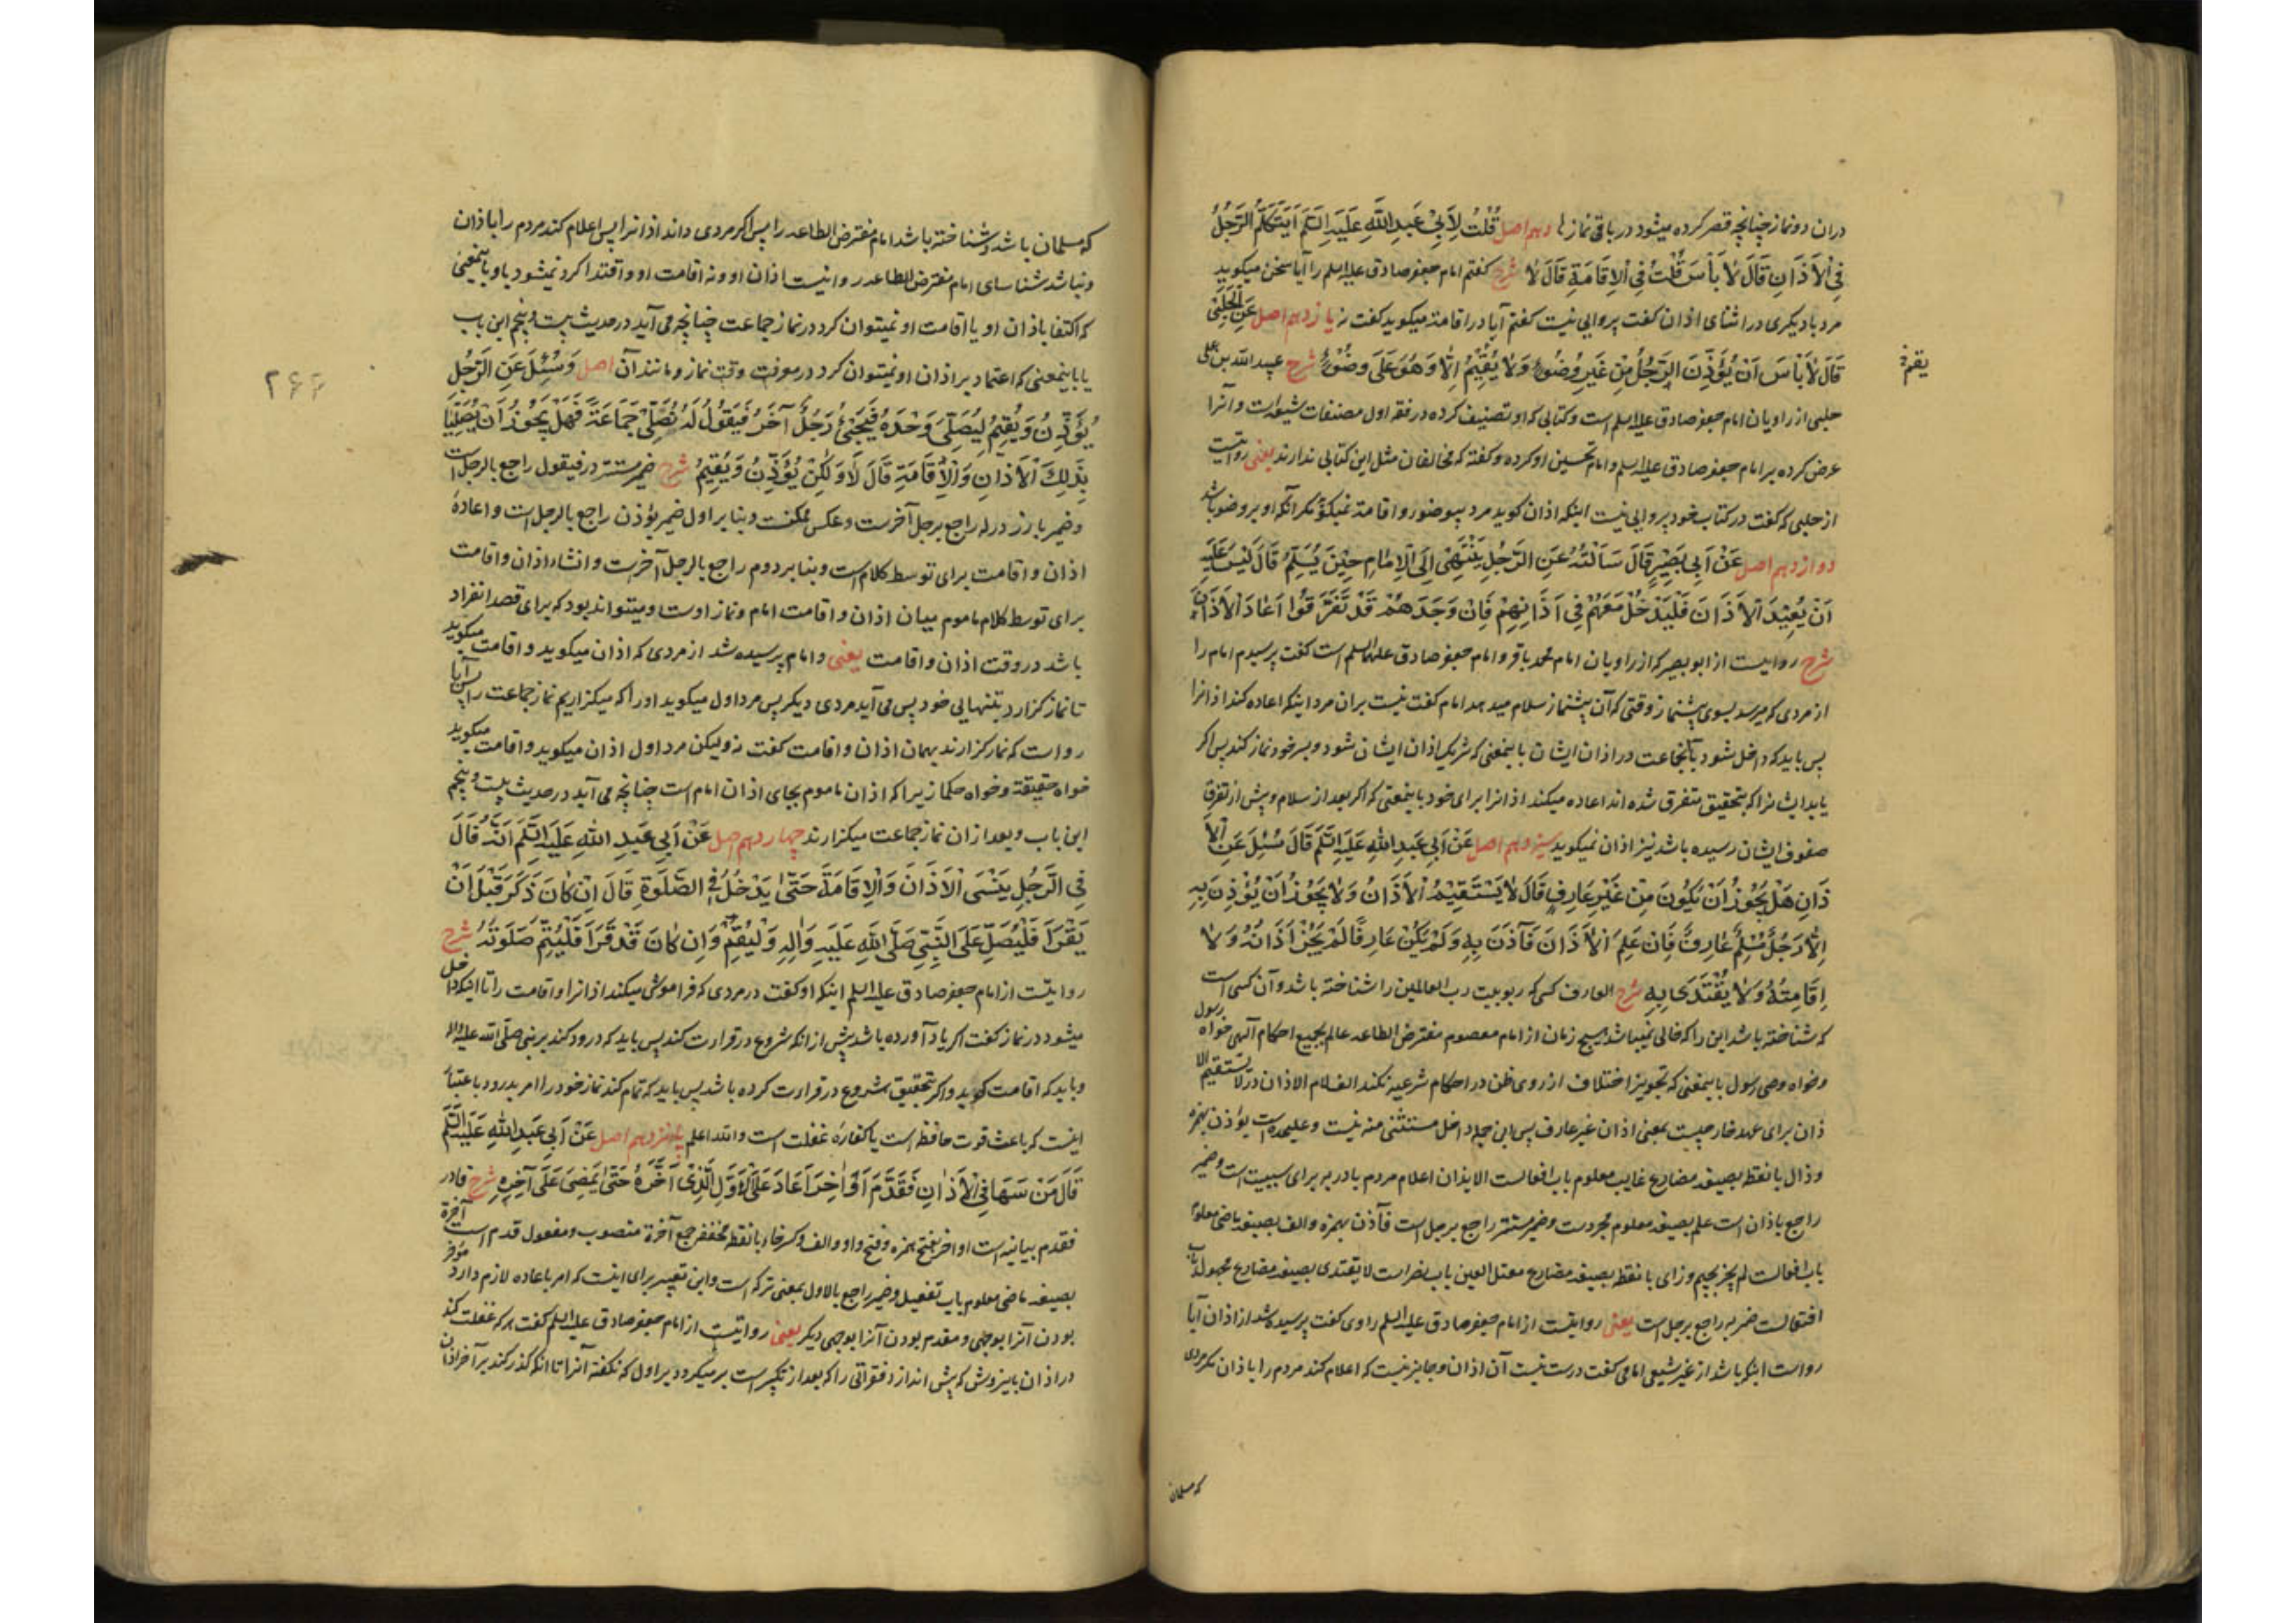 دران دو نماز چنانچه قصر کرده میشود در باقی نمازها دهم اصل قُلْتُ لِاَبِیْ عَبدِاللّٰهِ عَلَیَهِ السَّلَم اَیَتَکَلَّمُ الرَّجُلُ
فِی اْلاَذَانِ قَالَ لاٰ بَأسَ قُلْتُ فِی اْلاِقَامَةِ قَالَ لاٰ شرح کفتم امام جعفر صادق علیه السلم را آیا سخن میکوید
مرد با دیکری در اثنای اذان کفت پروایی نیست کفتم آیا در اقامة میکوید کفت نه یازدهم اصل عَنِ الْحَلَبِیّ
قَالَ لاٰ بَأسَ اَنْ یُؤَذِّنَ الرَّجُلُ مِنْ غَیرِ وُضُوءٍ وَلاٰ یُقِیْمُ اِلّٰا وَهُوَ عَلَی وضُوْءٍ شرح عبید الله بن علی
حلبی از راویان امام جعفر صادق علیه السلم است و کتابی که او تصنیف کرده در فقه اول مصنفات شیعه است و آنرا
عرض کرده بر امام جعفر صادق علیه السلم و امام تحسین او کرده و کفته که مخالفان مثل این کتابی ندارند یعنی روایتست
از حلبی که کفت در کتاب خود پروایی نیست اینکه اذان کوید مرد بیوضو و اقامة نمیکوید مکر آنکه او بر وضو باشد
دوازدهم اصل عَنْ اَبِی بَصِیْرٍ قَالَ سَاَلْتُهُ عَنِ الرَّجُلِ یَنْتَهِی اِلَی اْلاِمٰامِ حِیْنَ یُسَلِّمُ قَالَ لَیْسَ عَلَیهِ
اَنْ یُعِیْدَ اْلاَذَانَ فَلْیَدْخُلْ مَعَهُمْ فِی اَذَانِهِمْ فَاِنْ وَجَدَهُمْ قَدْ تَفَرَّقُوا اَعَادَ اْلاَذَانَ
شرح روایتست از ابو بصیر که از راویان امام محمد باقر و امام جعفر صادق علیهما السلم است کفت پرسیدم امام را
از مردی که میرسد بسوی پیشنماز وقتی که آن پیشنماز سلام میدهد امام کفت نیست بران مرد اینکه اعاده کند اذانرا
پس باید که داخل شود بآنجماعت در اذان ایشان باینمعنی که شریک اذان ایشان شود و بسر خود نماز کند پس اکر
یابد ایشانرا که بتحقیق متفرق شده اند اعاده میکند اذانرا برای خود باینمعنی که اکر بعد از سلام و پیش از تفرق
صفوف ایشان رسیده باشد نیز اذان نمیکوید سیزدهم اصل عَنْ اَبِی عَبدِ اللّٰهِ عَلَیَهِ السَّلَم قَالَ سُئِلَ عَنِ اْلاَ
ذَانِ هَلْ یَجُوْزُ اَنْ یَکُونَ مِنْ غَیْرِ عَارِفٍ قَالَ لاٰ یَسْتَقِیْمُ اْلاَذَانُ وَلاٰ یَجُوْزُ اَنْ یُؤْذِنَ بِهِ
اِلّٰا رَجُلٌ مُسْلِمٌ عٰارِفٌ فَاِنْ عَلِمَ اْلاَذَانَ فَآذَنَ بِهِ وَلَمْ یَکُنْ عَارِفًا لَمْ یَجُزْ اَذَانُهُ وَلاٰ
اِقَامَتُهُ وَلاٰ یُقْتَدَی بِهِ شرح العارف کسی که ربوبیت رب العالمین را شناخته باشد و آن کسی است
که شناخته باشد این را که خالی نمیباشد هیچ زمان از امام معصوم مفترض الطاعه عالم بجمیع احکام آلهی خواه رسول
و خواه وصی رسول باینمعنی که تجویز اختلاف از روی ظن در احکام شرعیه نکند الف لام الاذان در لا یستقیم الا
ذان برای عهد خارجیست بمعنی اذان غیر عارف پس این جمله داخل مستثنی منه نیست و علیحده است یؤذن بهمزه
و ذال با نقطه بصیغه مضارع غایب معلوم باب افعالست الایذان اعلام مردم با در به برای سببیت است و ضمیر
راجع باذان است علم بصیغه معلوم مجردست و ضمیر مستتر راجع برجل است فآذن بهمزه و الف بصیغه ماضی معلوم
باب افعالست لم یجز بجیم و زای با نقطه بصیغه مضارع معتل العین باب نصر است لا یقتدی بصیغه مضارع مجهول باب
افتعالست ضمیر به راجع برجل است یعنی روایتست از امام جعفر صادق علیه السلم راوی کفت پرسیده شد از اذان آیا
رواست اینکه باشد از غیر شیعی امامی کفت درست نیست آن اذان و جایز نیست که اعلام کند مردم را باذان مکر مردی
که مسلمان
که مسلمان باشد و شناخته باشد امام مفترض الطاعه را پس اکر مردی داند اذانرا پس اعلام کند مردم را باذان
و نباشد شناسای امام مفترض الطاعه روا نیست اذان او و نه اقامت او و اقتدا کرد نمیشود باو باینمعنی
که اکتفا باذان او یا اقامت او نمیتوان کرد در نماز جماعت چنانچه می آید در حدیث بیست و پنجم این باب
یا باینمعنی که اعتماد بر اذان او نمیتوان کرد در معرفت وقت نماز و مانند آن اصل وَسُئِلَ عَنِ الرَّجُلِ
یُؤَذِّنُ وَیُقِیْمُ لِیُصَلِّیَ وَحْدَهُ فَیَجِیْءُ رَجُلٌ آخَرُ فَیَقُولُ لَهُ نُصَلِّیْ جَمَاعَةً فَهَلْ یَجُوْزُ اَنْ یُصَلِّیَا
بِذَلِکَ اْلاَذَانِ وَاْلاِقَامَةِ قَالَ لاٰ وَلٰکِنْ یُؤَذِّنُ وَیُقِیْمُ شرح ضمیر مستتر در فیقول راجع بالرجل است
و ضمیر بارز در له راجع برجل آخرست و عکس ممکنست و بنابر اول ضمیر یؤذن راجع بالرجل است و اعادهٔ
اذان و اقامت برای توسط کلام است و بنابر دوم راجع بالرجل آخرست و انشاء اذان و اقامت
برای توسط کلام ماموم میان اذان و اقامت امام و نماز اوست و میتواند بود که برای قصد انفراد
باشد در وقت اذان و اقامت یعنی و امام پرسیده شد از مردی که اذان میکوید و اقامت میکوید
تا نماز کزارد بتنهایی خود پس می آید مردی دیکر پس مرد اول میکوید او را که میکزاریم نماز جماعت را پس آیا
رواست که نماز کزارند بهمان اذان و اقامت کفت نه ولیکن مرد اول اذان میکوید و اقامت میکوید
خواه حقیقة و خواه حکما زیرا که اذان ماموم بجای اذان امام است چنانچه می آید در حدیث بیست و پنجم
این باب و بعد ازان نماز جماعت میکزارند چهاردهم اصل عَنْ اَبِی عَبدِ اللّٰهِ عَلَیَهِ السَّلَم اَنَّهُ قَالَ
فِی الرَّجُلِ یَنْسَی اْلاَذَانَ وَاْلاِقَامَةَ حَتّٰی یَدْخُلَ فِی الصَّلٰوةِ قَالَ اِنْ کَانَ ذَکَرَ قَبْلَ اَنْ
یَقْرَأَ فَلْیُصَلِّ عَلَی النَّبِیِّ صَلَّی اللّٰهِ عَلَیَهِ وَاٰلِهِ وَلْیُقِمْ وَاِن کَانَ قَدْ قَرَأَ فَلْیُتِمَّ صَلَوتَهُ شرح
روایتست از امام جعفر صادق علیه السلم اینکه او کفت در مردی که فراموش میکند اذانرا و اقامت را تا اینکه داخل
میشود در نماز کفت اکر یاد آورده باشد پیش از انکه شروع در قراءت کند پس باید که درود کند بر نبی صلّی الله علیه و اله
و باید که اقامت کوید و اکر بتحقیق شروع در قراءت کرده باشد پس باید که تمام کند نماز خود را امر بدرود باعتبار
اینست که باعث قوت حافظه است یا کفارهٔ غفلت است و الله اعلم پانزدهم اصل عَنْ اَبِی عَبدِ اللّٰهِ عَلَیَهِ السَّلَم
قَالَ مَنْ سَهَا فِی اْلاَذَانِ فَقَدَّمَ اَوَاخِرَ اَعَادَ عَلَی اْلاَوَّلِ الَّذِیْ اَخَّرَهُ حَتّٰی یَمْضِیَ عَلَی آخِرِهِ شرح فا در
فقدم بیانیه است اواخر بفتح همزه و فتح واو و الف و کسر خاء با نقطه مخفف جمع آخرة منصوب و مفعول قدم است آخرهٔ
بصیغه ماضی معلوم باب تفعیل و ضمیر راجع بالاول بمعنی ترکه است و این تعبیر برای اینست که امر باعاده لازم دارد مؤخر
بودن آنرا بوجهی و مقدم بودن آنرا بوجهی دیکر یعنی روایتست از امام جعفر صادق علیه السلم کفت هر که غفلت کند
در اذان باینروش که پیش اندازد فقراتی را که بعد از تکبیر است بر میکردد بر اول که نکفته آنرا تا انکه کذر کند بر آخر اذان
یقم خ
۲۶۶